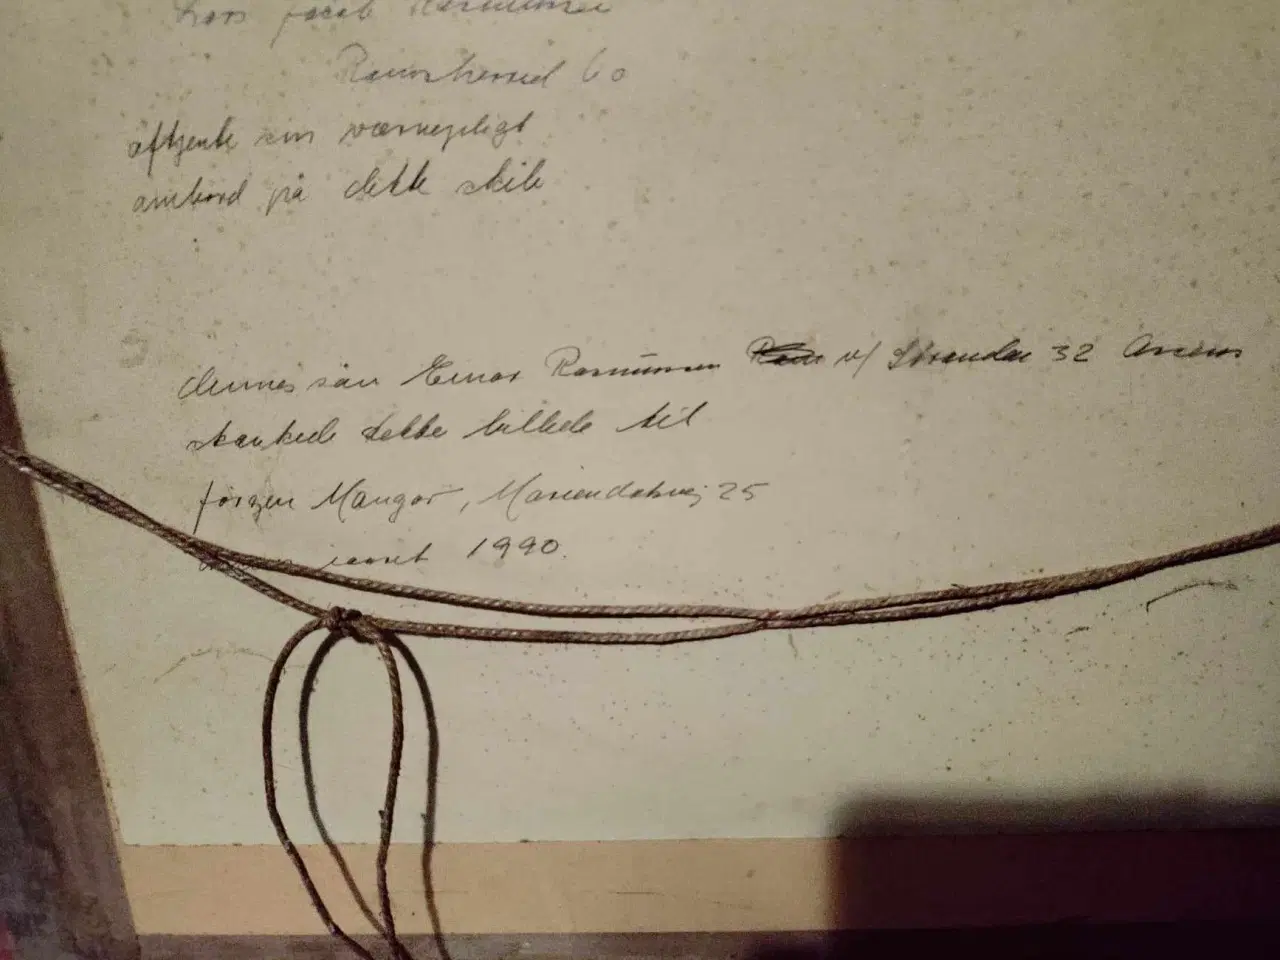 Lars Jacob Rasmussen
60
aftjente sin værnepligt
ombord på dette skib
dennes søn Einar Rasmussen v/ Stranden 32 Assens
skænkede dette billede til
Jørgen Mangor, Mariendalsvej 25
1990.